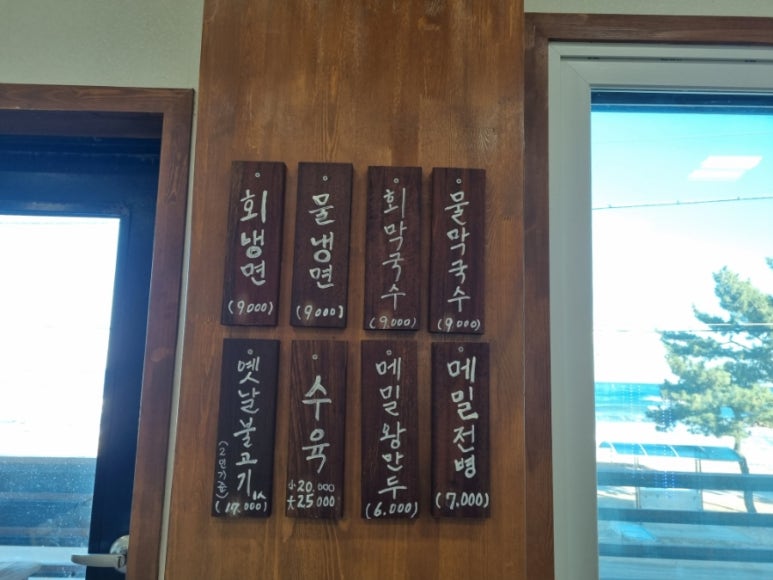 회냉면
(9000)
물냉면
(9000)
회막국수
(9000)
물막국수
(9000)
옛날불고기
(2인기준)
(17.000)
수육
小20.000
大25000
메밀왕만두
(6.000)
메밀전병
(7.000)